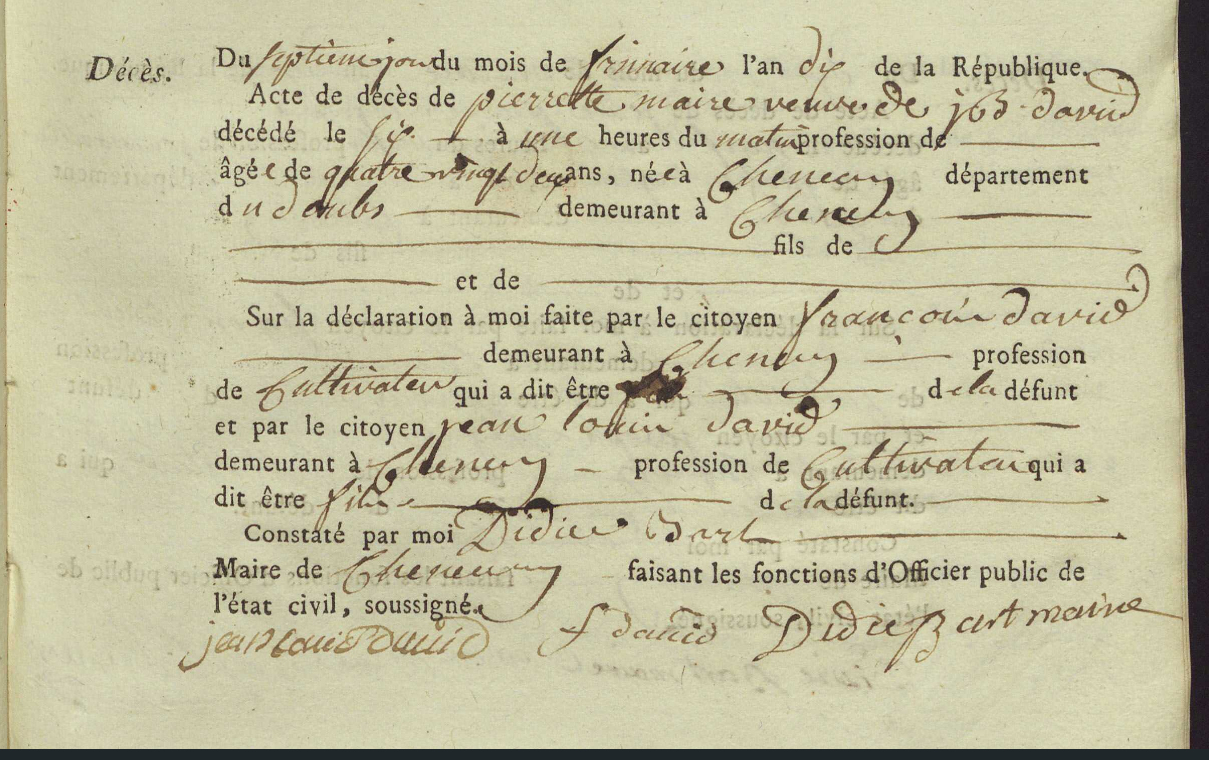 Décès. Du septieme jour du mois de frimaire l'an dix de la République.
Acte de décès de pierrette maire veuve de david
décédé le six à une heures du matin profession de
âgée de quatre vingt deux ans, née à Chenecey département
du doubs demeurant à Chenecey
fils de
et de
Sur la déclaration à moi faite par le citoyen francois david
demeurant à Chenecey profession
de Cultivateur qui a dit être de la défunt
et par le citoyen jean louis david
demeurant à Chenecey profession de Cultivateur qui a
dit être fils de la défunt.
Constaté par moi Didier Bart
Maire de Chenecey faisant les fonctions d'Officier public de
l'état civil, soussigné.
jean louis David f david Didier Bart maire